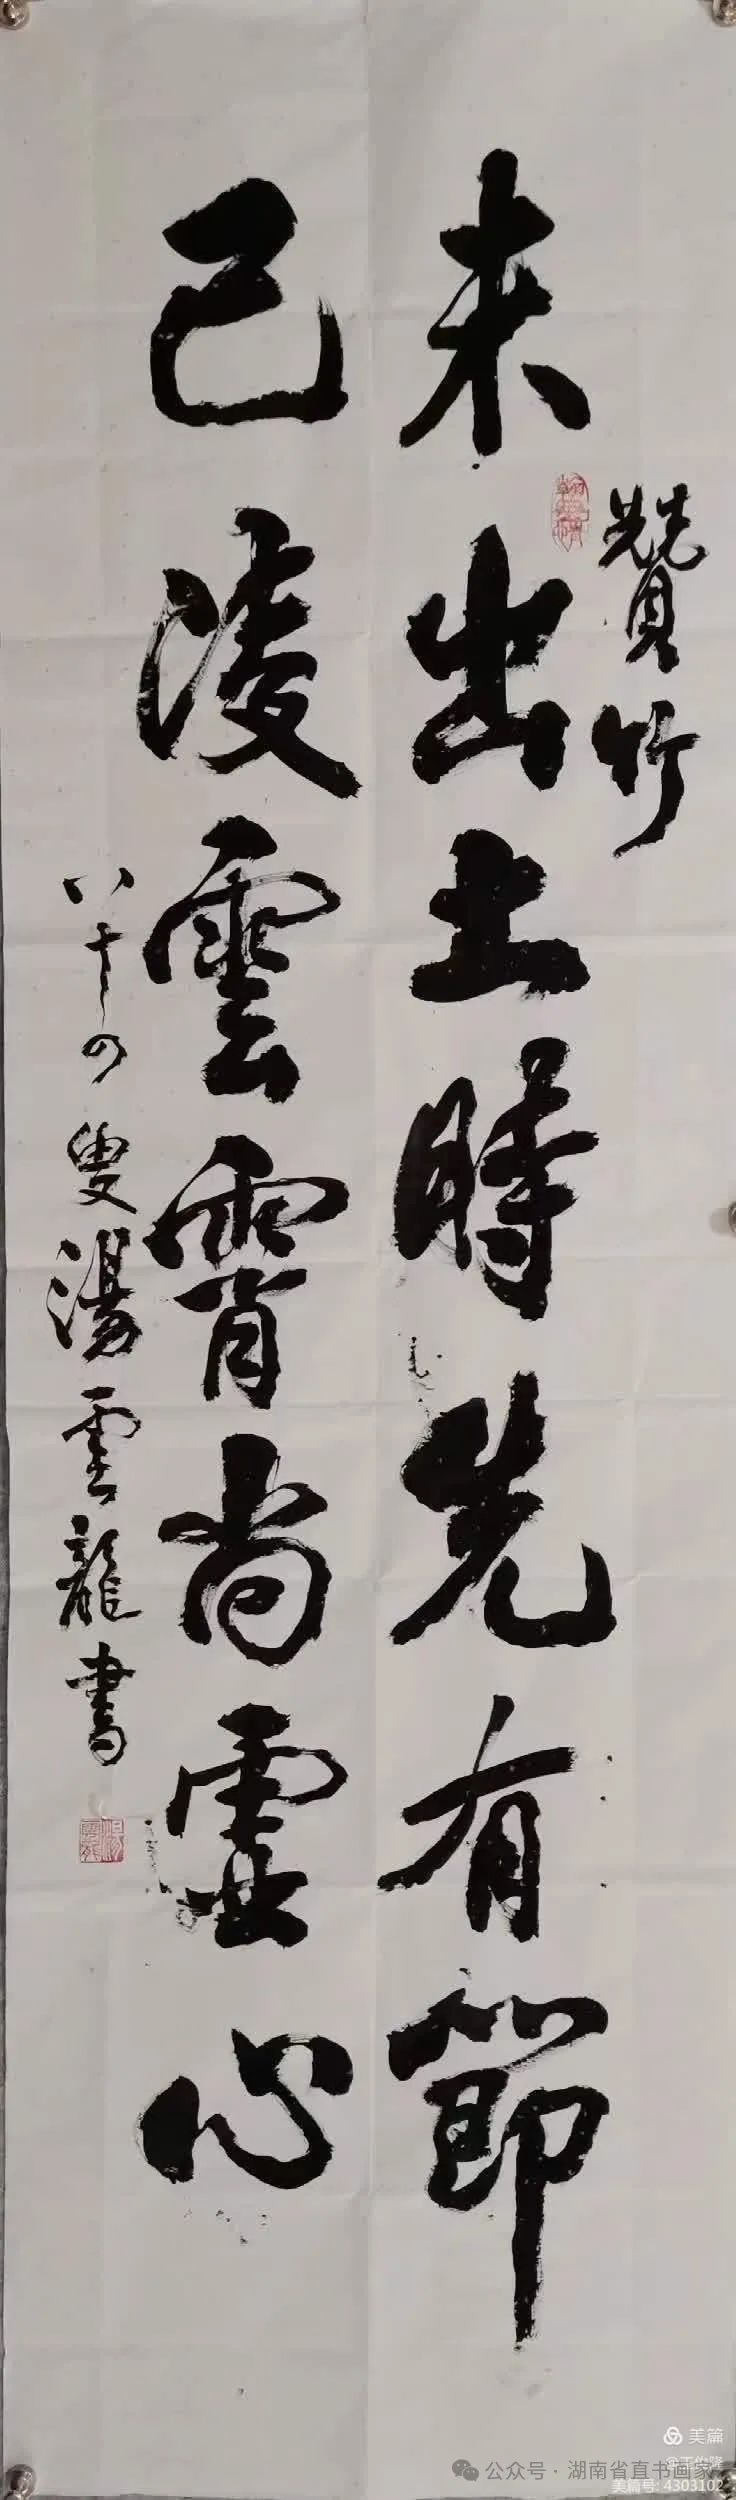 贊竹
未出土時先有節
已凌雲霄尚虛心
八十四叟湯雲龍書
美篇
公众号·湖南省直书画家
美篇号:4303102